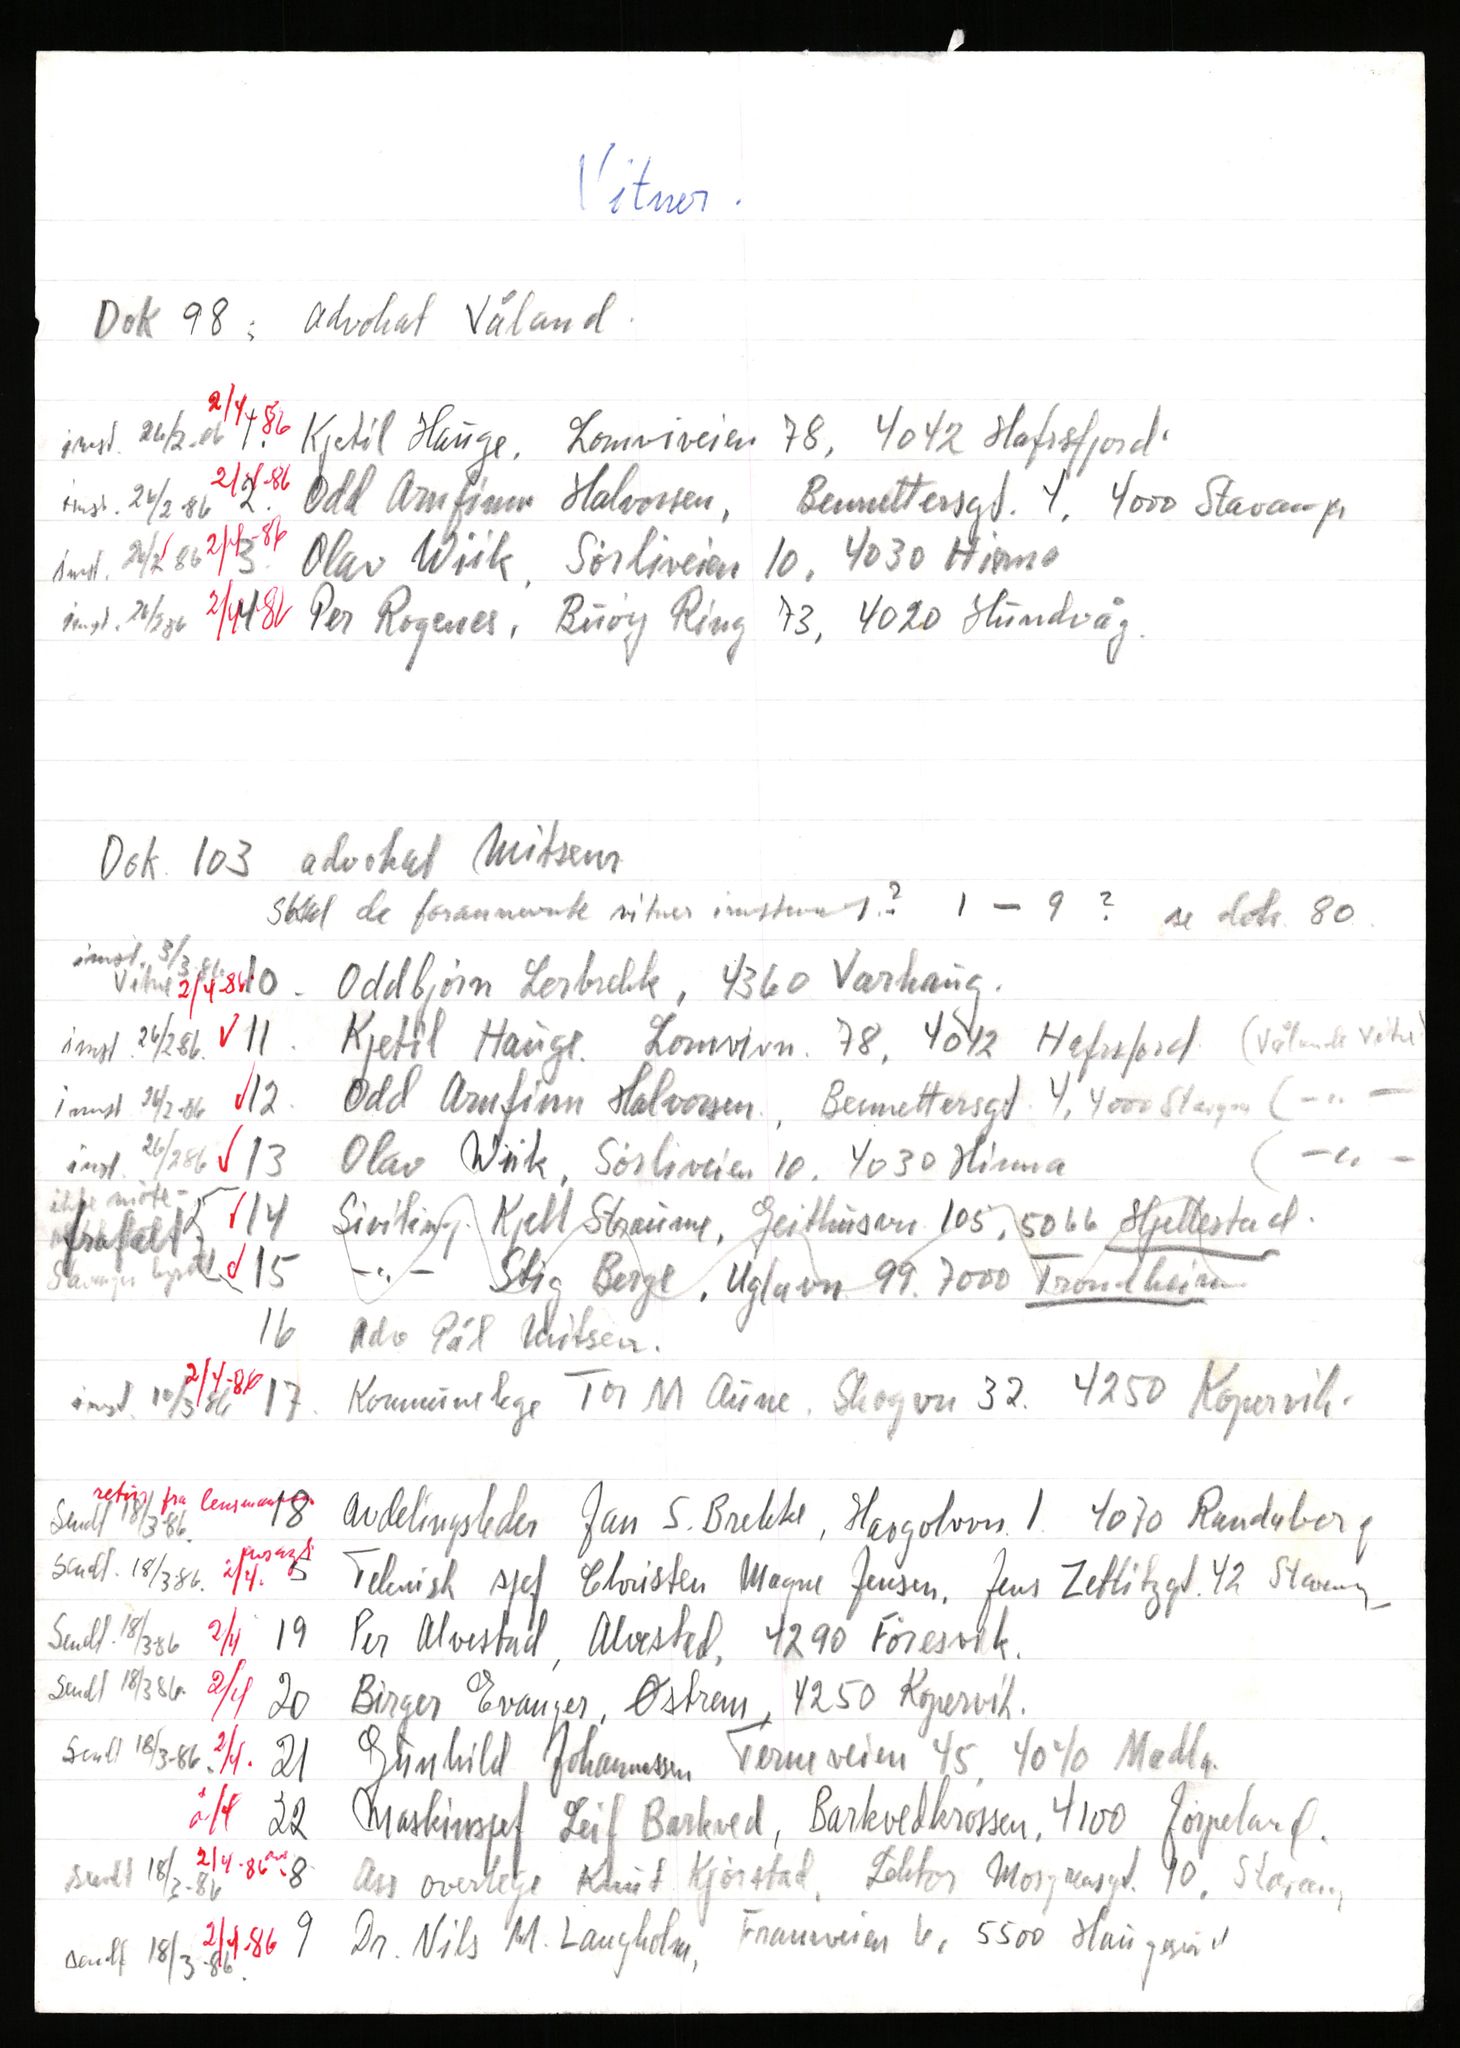 Vitner.
Dok 98: advokat Våland.
innst. 26/2-86 2/4-86 1. Kjetil Hauge, Lomviveien 78, 4042 Hafrsfjord.
innst. 26/2-86 2/4-86 2. Odd Arnfinn Halvorsen, Bennettersgt. 4, 4000 Stavanger
innst. 26/2 86 2/4-86 3. Olav Wiik, Sörliveien 10, 4030 Hinna
innst. 26/2 86 2/4-86 4 Per Rogenes, Buöy Ring 73, 4020 Hundvåg.
Dok. 103 advokat Mitsem
Skal de forannevnte vitner innstevnes? 1 - 9 ? se dok. 80
innst. 3/3-86.
Vitne 2/4-86. 10. Oddbjörn Lerbrekk, 4360 Varhaug.
innst. 26/2-86. √ 11. Kjetil Hauge. Lomvivn. 78, 4042 Hafrsfjord. (Vålands Vitne)
innst 26/2-86 √ 12. Odd Arnfinn Halvorsen, Bennettersgt. 4, 4000 Stavanger ( -"-
inst. 26/2 86 √ 13 Olav Wiik, Sörliveien 10, 4030 Hinna ( -"-
ikke möte -
frafalt √ 14 Siviling. Kjell Straume, Geithusvn. 105, 5066 Hjellestad.
Stavanger byrett √ 15 -"- Stig Berge, Uglavn. 99. 7000 Trondheim
16 Adv Pål Mitsem.
innst. 10/3-86 2/4-86 17. Kommunelege Tor M Aune. Skogvn 32. 4250 Kopervik.
retur fra lensmannen.
Sendt 18/3-86. 18 Avdelingsleder Jan S. Brekke, 1. 4070 Randaberg
Sendt. 18/3-86. 2/4. 5 Teknisk sjef Christen Magne Jensen, Jens Zetlitzgt. 42 Stavanger
Sendt. 18/3-86 2/4 19 Per Alvestad, Alvestad, 4290 Föresvik.
Sendt 18/3 86. 2/4 20 Birger Evanger, Østrem, 4250 Kopervik.
Sendt 18/3-86. 2/4. 21 Gunhild Johannessen Terneveien 45, 4040 Madla.
2/4 22 Maskinsjef Leif Barkved, Barkvedkrossen, 4100 Jörpeland.
Sendt 18/3-86 2/4-86 8 Ass overlege Knut Kjörstad, Lektor 10, Stavang
Sendt 18/3-86. 2/4-86 9 Dr. Nils M. Langholm, Framveien 6, 5500 Haugesund